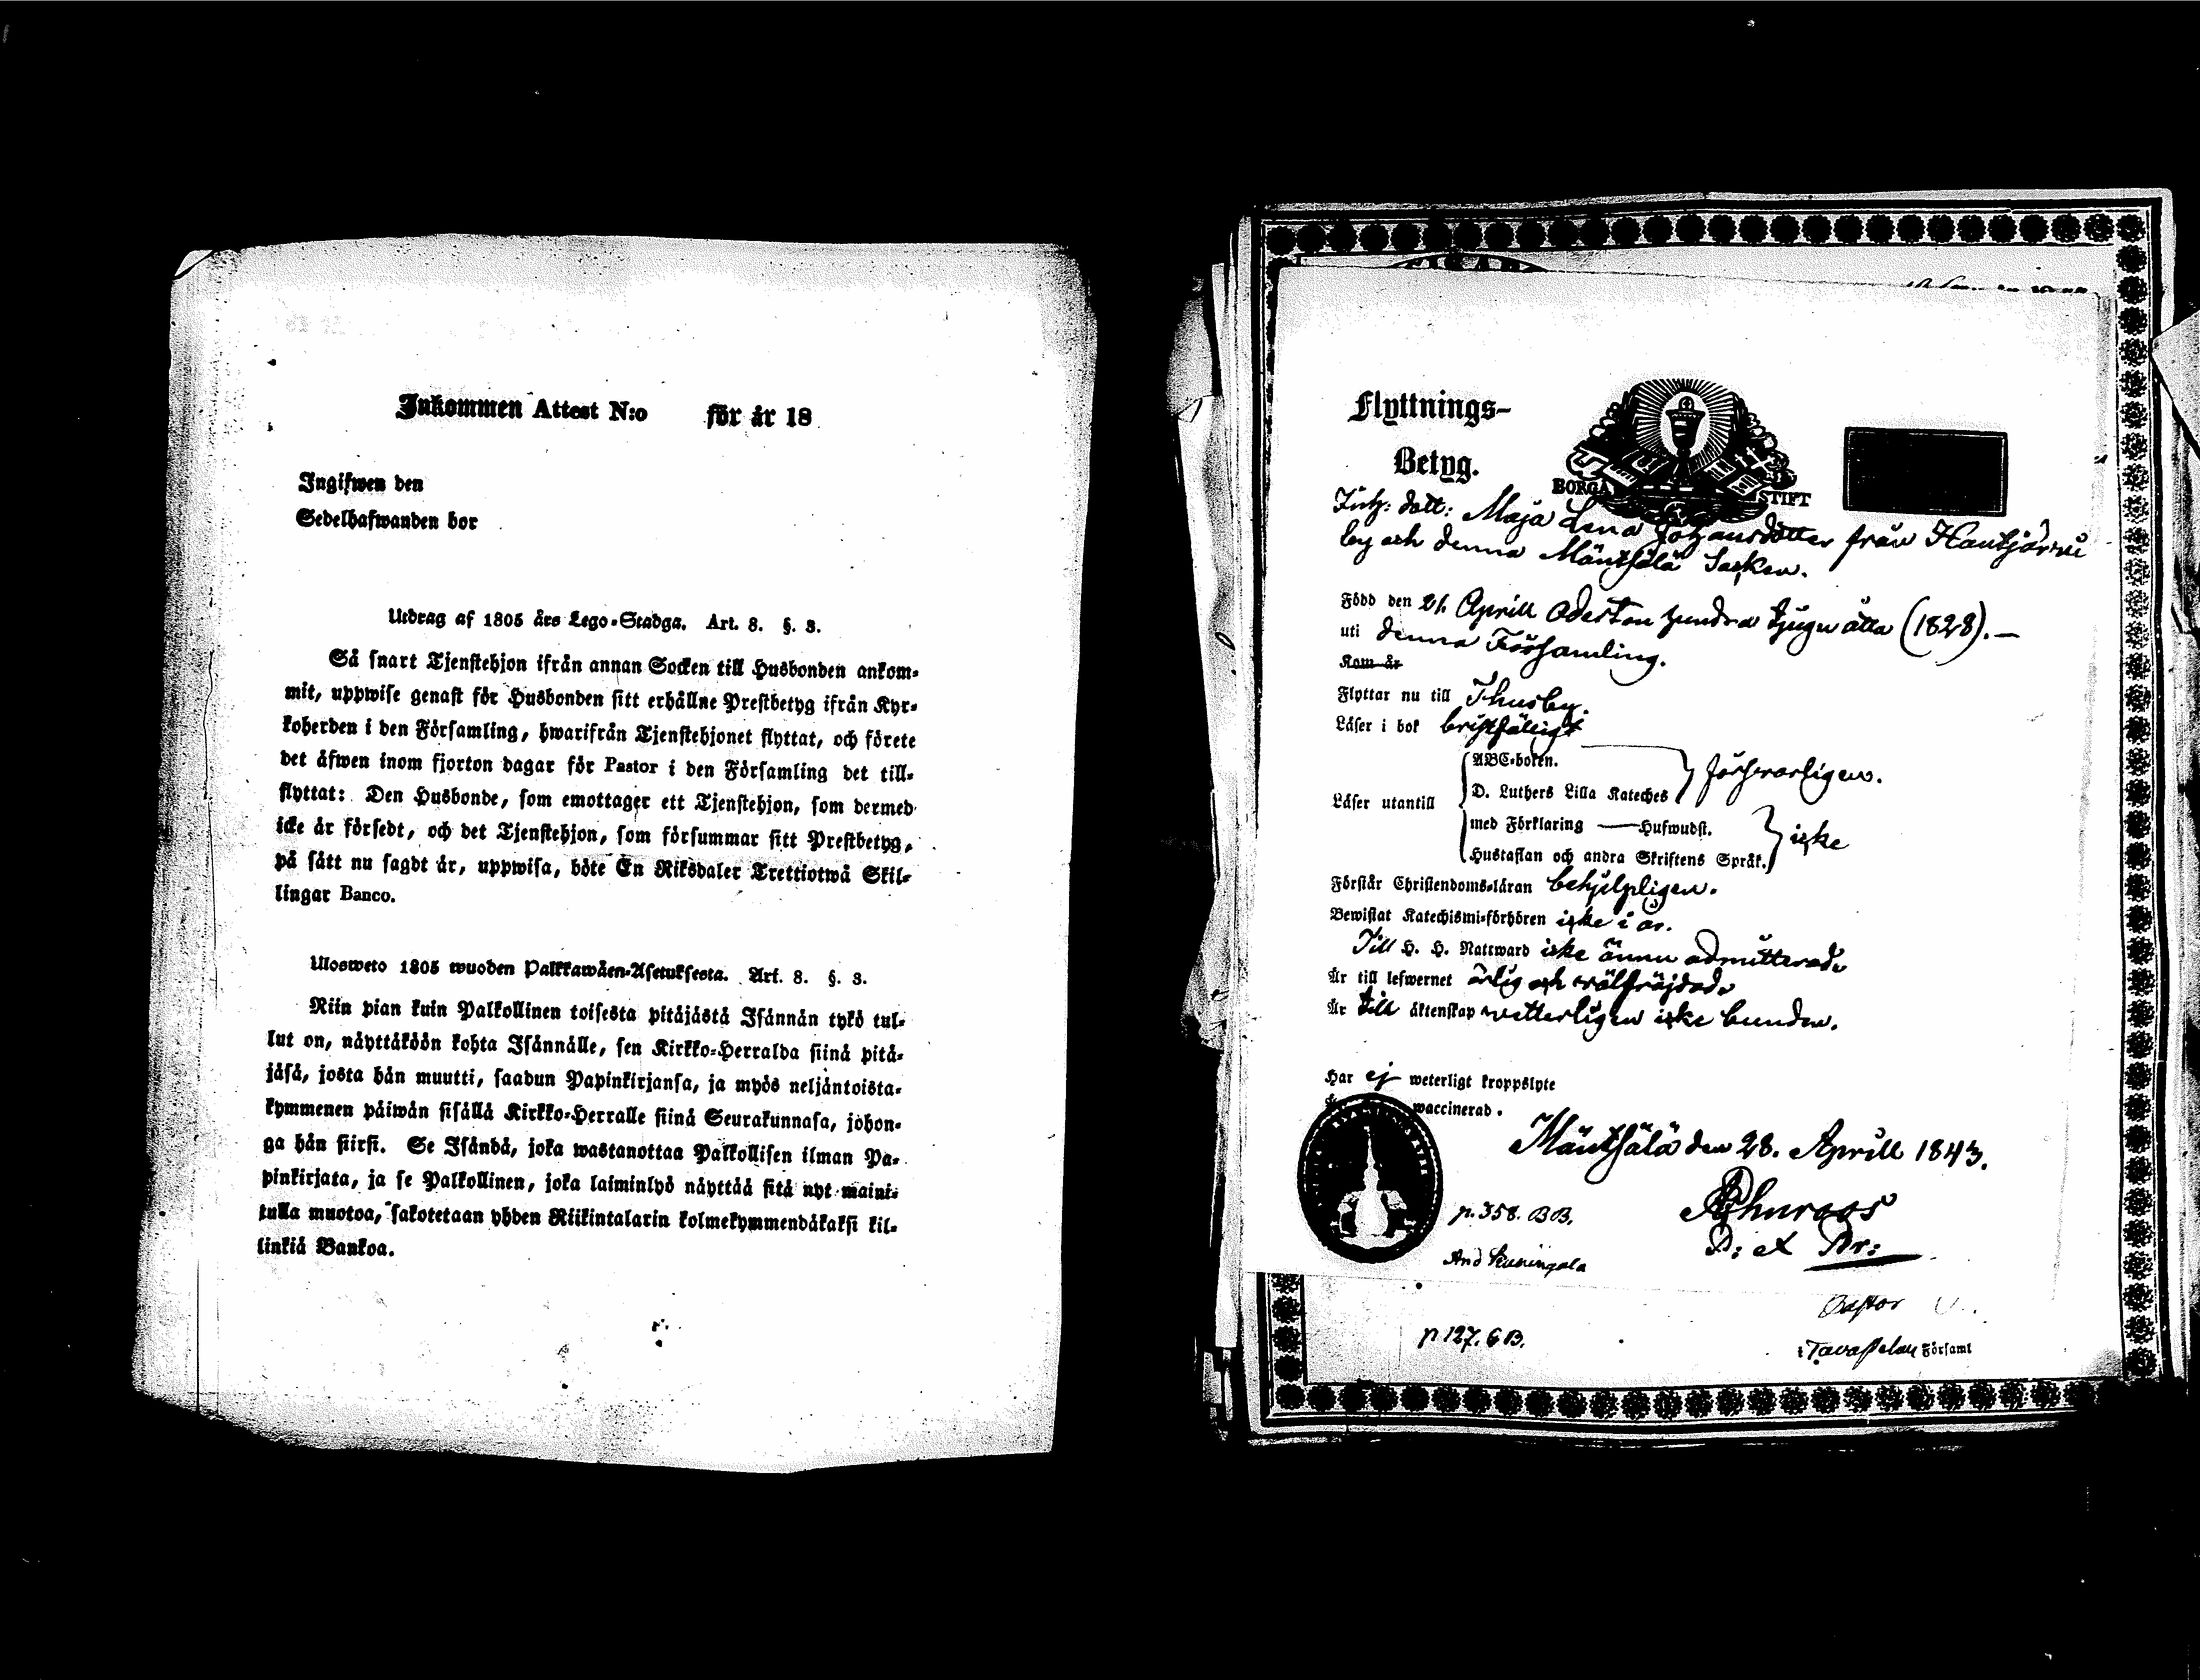 Inkommen Attest N:o för år 18
Ingifwen den
Sedelhafwanden bor
Utdrag af 1805 års Lego-Stadga. Art. 8. §. 3.
Så snart Tjenstehjon ifrån annan Socken till Husbonden ankom-
mit, uppwise genast för Husbonden sitt erhållne Prestbetyg ifrån Kyr-
koherden i den Församling, hwarifrån Tjenstehjonet flyttat, och förete
det äfwen inom fjorton dagar för Pastor i den Församling det till-
flyttat: Den Husbonde, som emottager ett Tjenstehjon, som dermed
icke är försedt, och det Tjenstehjon, som försummar sitt Prestbetyg,
på sätt nu sagdt är, uppwisa, böte En Riksdaler Trettiotwå Skil-
lingar Banco.
Ulosweto 1805 wuoden Palkkawäen-Asetuksesta. Art. 8. §. 3.
Niin pian kuin Palkollinen toisesta pitäjästä Isännän tykö tul-
lut on, näyttäköön kohta Isännälle, sen Kirkko-Herralda siinä pitä-
jäsä, josta hän muutti, saadun Papinkirjansa, ja myös neljäntoista-
kymmenen päiwän sisällä Kirkko-Herralle siinä Seurakunnasa, johon-
ga hän siirsi. Se Isändä, joka wastanottaa Palkollisen ilman Pa-
pinkirjata, ja se Palkollinen, joka laiminlyö näyttää sitä nyt maini-
tulla muotoa, sakotetaan yhden Riikintalarin kolmekymmendäkaksi kil-
linkiä Bankoa.
Flyttnings-
Betyg.
BORGÅ STIFT
Inh: dott: Maja Lena Johansdotter från Hautjärwi
by och denna Mäntsälä Socken.
Född den 21. Aprill Aderton hundra tjugu åtta (1828).—
uti denna Församling.
Kom år
Flyttar nu till Thusby.
Läser i bok bristfälligt
ABC-boken.
D. Luthers Lilla Kateches } försvarligen.
Läser utantill
med Förklaring — Hufwudst.
Hustaflan och andra Skriftens Språk. } icke
Förstår Christendoms-läran behjelpligen.
Bewistat Katechismi-förhören icke i år.
Till H. H. Nattward icke ännu admitterad.
Är till lefwernet ärlig och wälfräjdad.
Är till äktenskap wetterligen icke bunden.
Har ej weterligt kroppslyte
waccinerad.
Mäntsälä den 28. Aprill 1843.
p. 358. BB.
P: et Pr:
And Kuningala
Pastor
p 127. 6 B.
i Församl